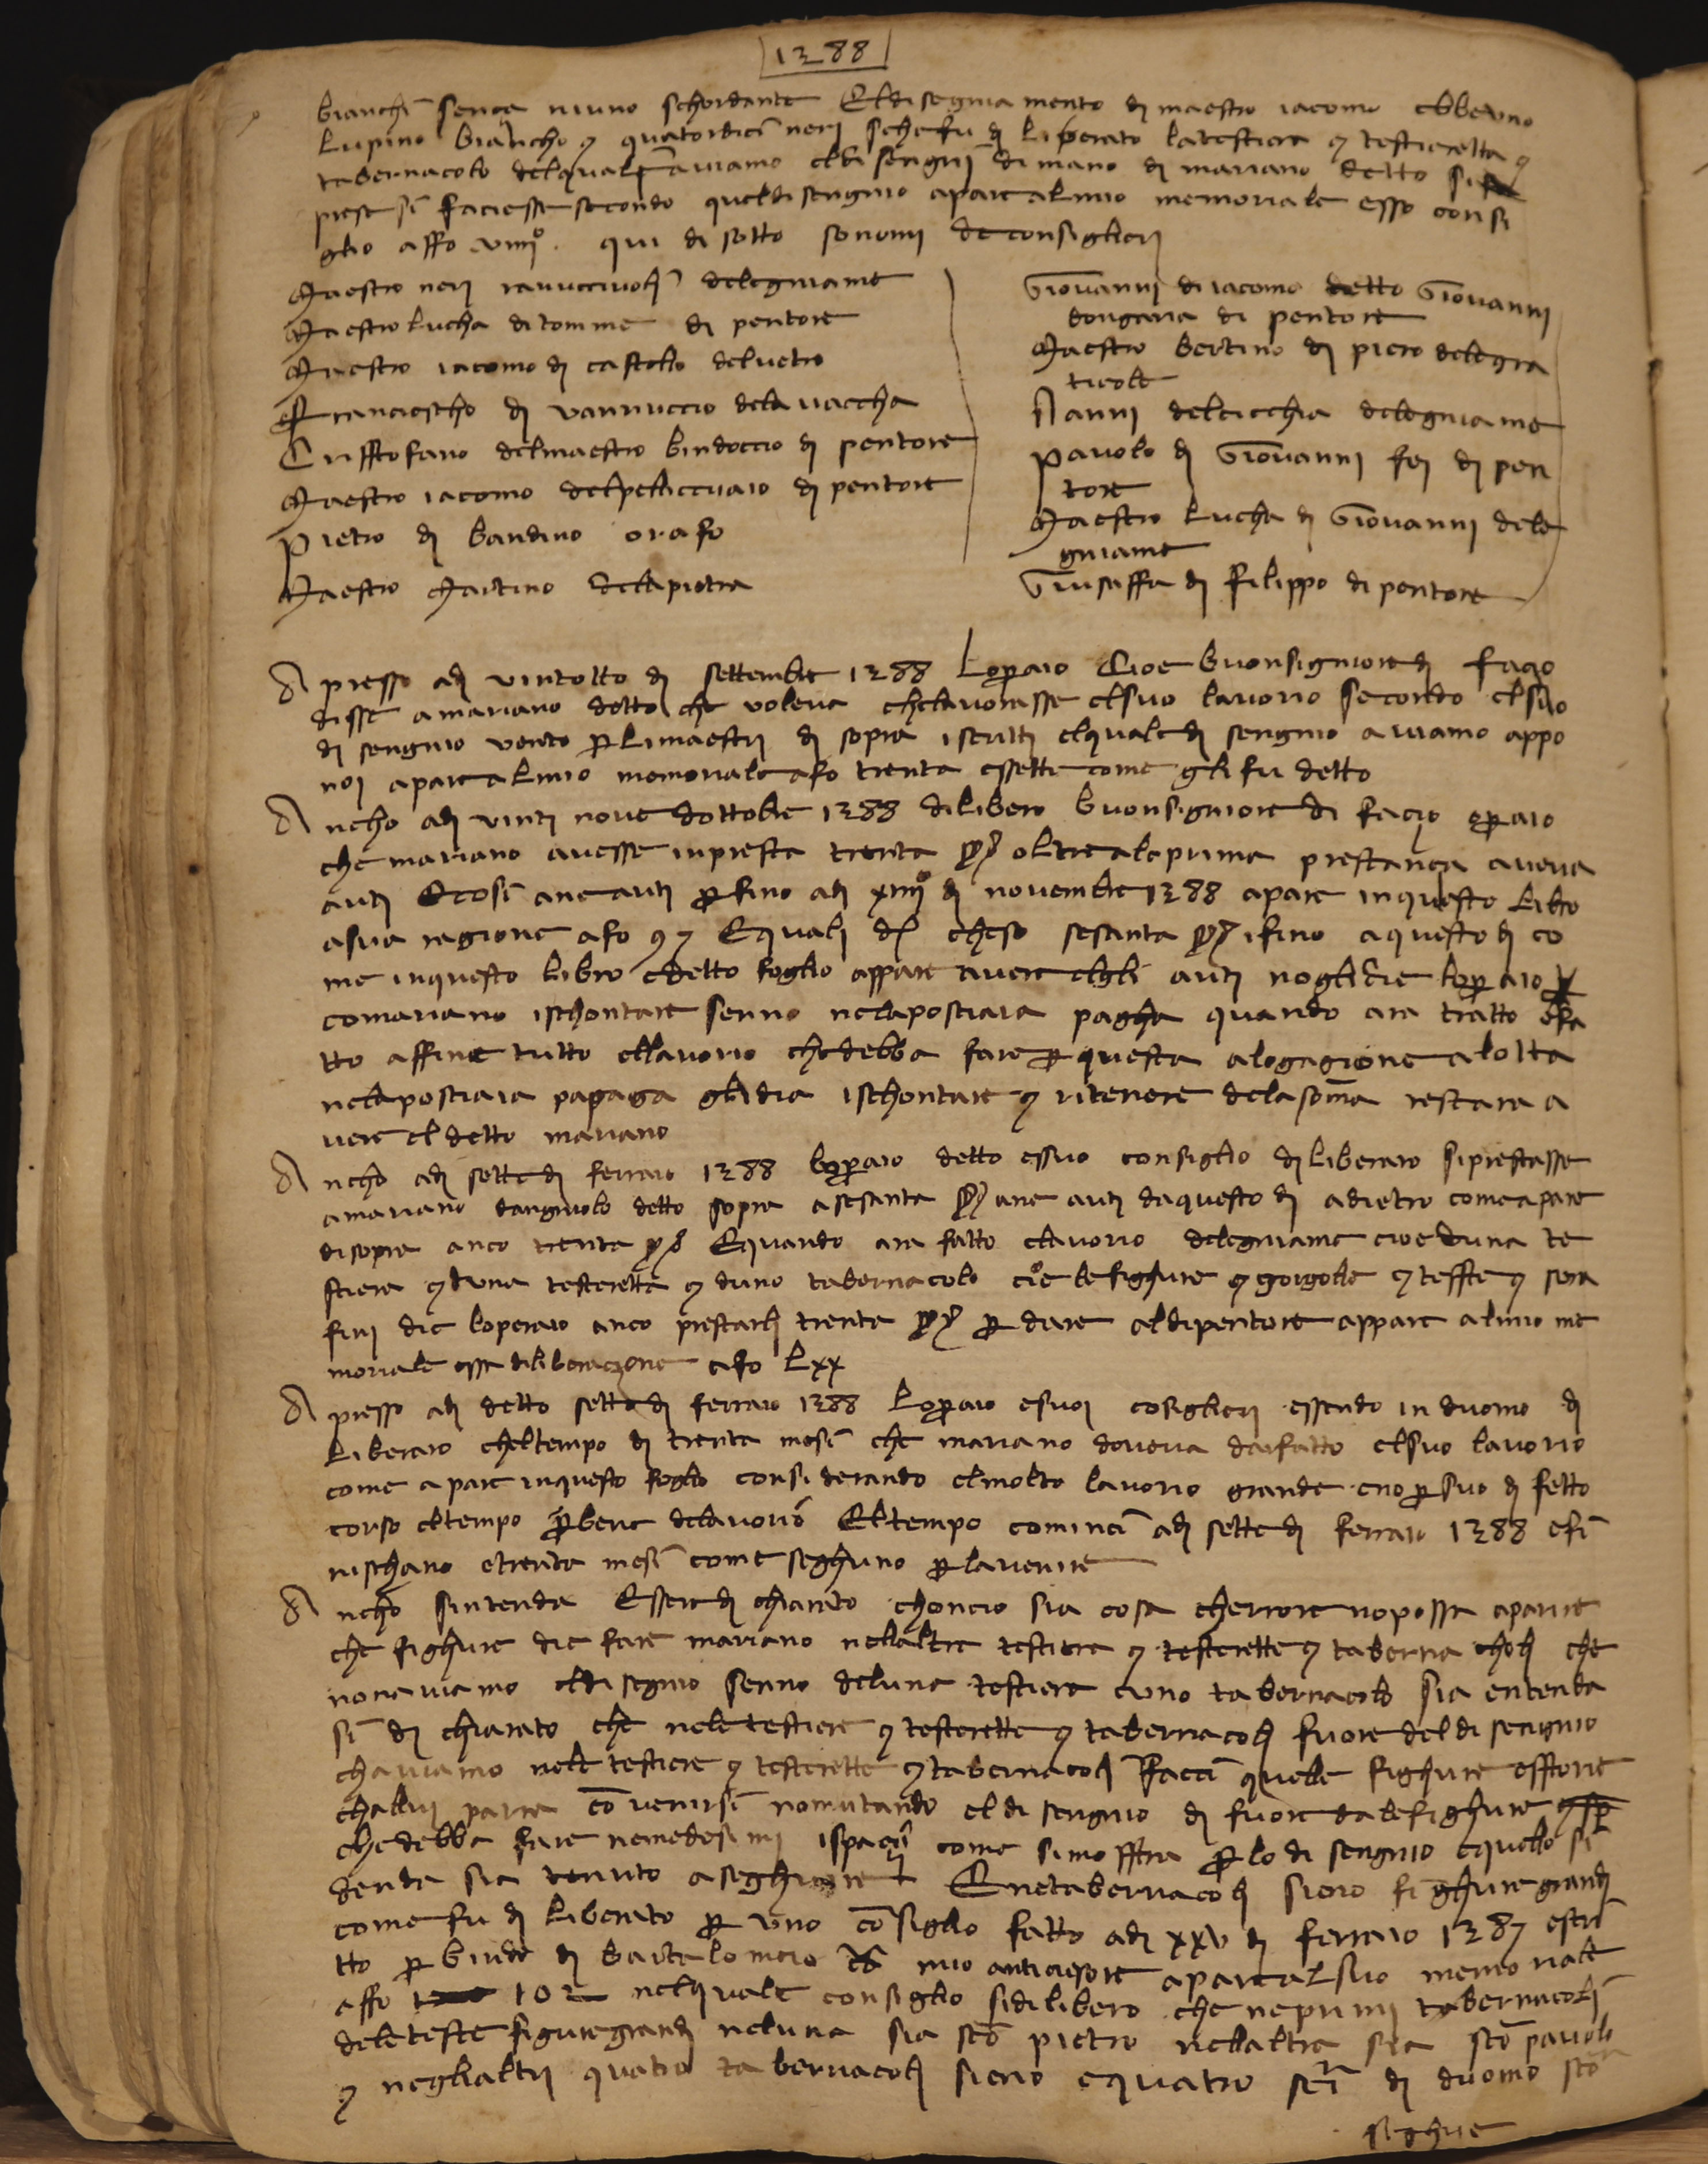 1388
bianchi sença niuno schordante El disegniamento di maestro iacomo ebbe uno
lupino biancho e quatordici neri sichè fu diliberato la testiera e testieretta e
tabernacolo del quale aviamo el disengni di mano di mariano detto si
prese si faciesse secondo quel disengnio apare al mio memoriale esso consi
glio affo viiiio. qui di sotto sono mi de consiglieri
Maestro neri ranucciuoli delegniame
Maestro lucha di tomme dipentore
Maestro iacomo di castello del vetro
Franciescho di vannuccio dela vaccha
Cristofano del maestro bindoccio dipentore
Maestro iacomo del pellicciaio dipentore
Pietro di bandino orafo
Maestro Martino dela pietra
Giovanni di iacomo detto Giovanni
dongaria dipentore
Maestro bertino di piero dele gra
ticole
Nanni del cicchia delegniame
Pavolo di Giovanni fei dipen
tore
Maestro lucha di Giovanni dele
gniame
Giusaffa di Filippo dipentore
Apresso adi vintotto di settembre 1388 loperaio Cioe buonsigniore di facio
disse a mariano detto che voleva che lavorasse el suo lavorio secondo el suo
disengnio vento per li maestri di sopra iscritti el quale disengnio aviamo appo
noi apare al mio memoriale a fo trenta essette come gli fu detto
Ancho adi vinti nove dottobre 1388 dilibero buonsigniore di facio operaio
che mariano avesse in presta trenta oltre ale prime prestança aveva
auti E così ane auti per fino adi xiiiio di novembre 1388 apare in questo libro
a sua ragione a fo E quali che so sesanta ifino a questo di co
me in questo libro e detto foglio appare avere elgli auti nogli die loperaio
co mariano ischontare senno nela postiaia pagha quando ara tratto efa
tto affine tutto el lavorio che debba fare per questa alogagione alotta
nela postiaia papaga gli dia ischontare e ritenere dela soma restara a
vere el detto mariano
Ancho adi sette di ferraio 1388 loperaio detto essuo consiglio diliberaro si prestasse
a mariano dangniolo detto sopra a sesanta ane auti da questo di adietro come apare
di sopra anco trenta E quando ara fatto el lavorio delegniame cioe duna te
stiera e duna testeretta e duno tabernacolo cioe le fighure e gorgolle e teste e sera
fini die loperaio anco prestarli trenta per dare al dipentore appare al mio me
moriale essa diliberazione a fo lxx
Apresso adi detto sette di ferraio 1388 loperaio e suoi cosiglieri essendo in duomo di
liberaro chel tempo di trenta mesi che mariano doveva dar fatto el suo lavorio
come apare in questo foglio considerando el molto lavorio grande e no per suo difetto
corso el tempo per bene delavorio El tempo cominci adi sette di ferraio 1388 efi
nischano e trenta mesi come seghuno per lavenire
Ancho sintenda Essere di chiarato choncio sia cosa cherrore no possa aparire
che fighure die fare mariano nellaltre testiere e testerette e tabernacholi che
non aviamo el disegnio senno del una testiera e uno tabernacolo sia entenda
si di chiarato che nele testiere e testerette e tabernacoli fuore del disengnio
chaviamo nele testiere e testerette e tabernacoli Facci quelle fighure esstorie
challui parra convenirsi no mutando el disengnio di fuore da le fighure
che debba fare ne medesimi ispacii come si mosstra per lo disengnio e quello si
denda sia tenuto a seghuire E ne tabernacoli siero fighure grandi
come fu diliberato per uno consiglio fatto adi xxv di ferraio 1387 escri
tto per Guido di bartalomeio mio anticiesore apare al suo memoriale
affo 102 nel quale consiglio si dilibero che ne primi tabernacoli
dele teste figure grandi nel una sia sco pietro nellaltra sia sco pavolo
e neglialtri quatro tabernacoli sieno e quatro sci di duomo sco
seghue